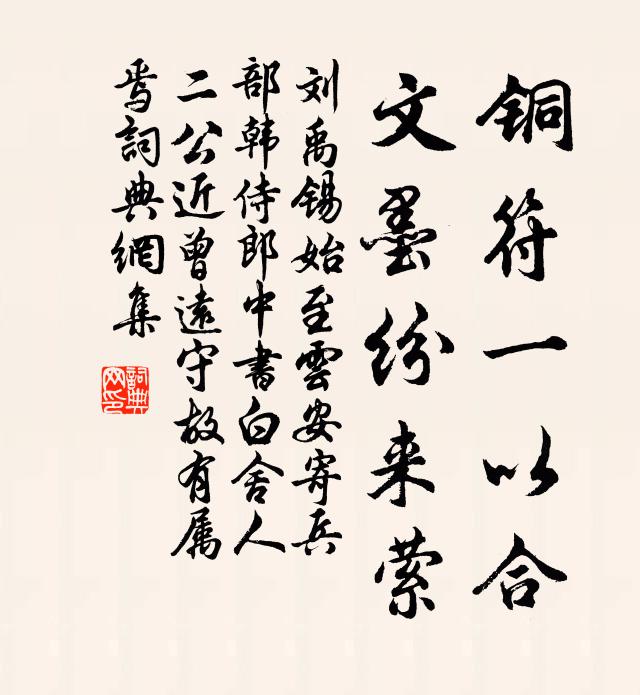 铜符一以合
文墨纷来萦
刘禹锡始至雲安寄兵
部韩侍郎中書白舍人
二公近曾遠守故有属
焉詞典網集
詞典
网印